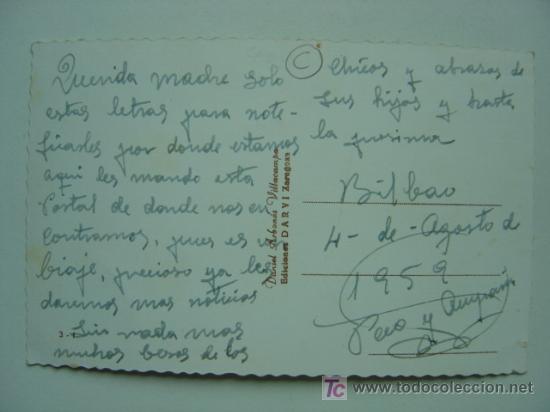 Querida madre solo
estas letras para note-
ficarles por donde estamos
aqui les mando esta
Postal de donde nos en
contramos, pues es un
biaje, precioso ya les
daremos mas noticias
Sin nada mas
muchos besos de los
C
Chicos y abrazos de
sus hijos y hasta
la procima
Bilbao
4-de-Agosto de
1959
y
Daniel Arbonés Villacampa
Ediciones DARVI Zaragoza
3.-
TC
todocoleccion
www.todocoleccion.net